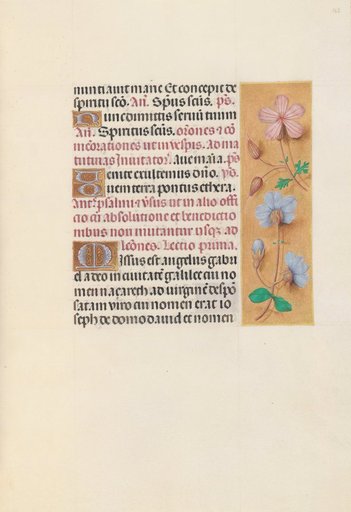 nuntiavit marie Et concepit de
spiritu scō. Añ. Sp̄us scūs. ps̄.
Nunc dimittis servū tuum
Añ. Spiritus scūs. or̄ones ⁊ cō
mēorationes ut in vesp̄is. Ad ma
tutinas Invitator̄. Ave maria. ps̄
Venite exultemus dn̄o. ȳo.
Quem terra pontus ethera.
Ant̄e psalmi ⁊ v̄sus ut in alio offi
cio cū absolutione et benedictio
nibus non mutantur usq̄ ad
lc̄ones. Lectio prima.
Missus est angelus gabri
el a deo in civitatē galilee cui no
men naçareth. ad virginē despō
satam viro cui nomen erat io
seph de domo david et nomen